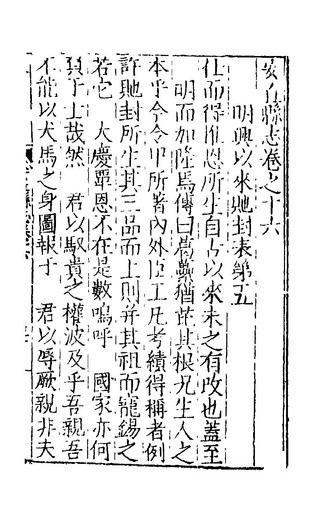 安丘縣志卷之十六
明興以來貤封表第五
仕而得推恩所生自古以來未之有改也蓋至
明而加隆焉傳曰葛藟猶芘其根况生人之
本乎今令甲所著内外臣工凡考績得稱者例
許貤封所生其三品而上則并其祖而寵錫之
若它 大慶覃恩不在是數嗚呼 國家亦何
負于士哉然 君以馭貴之權波及乎吾親吾
不能以犬馬之身圖報于 君以辱厥親非夫